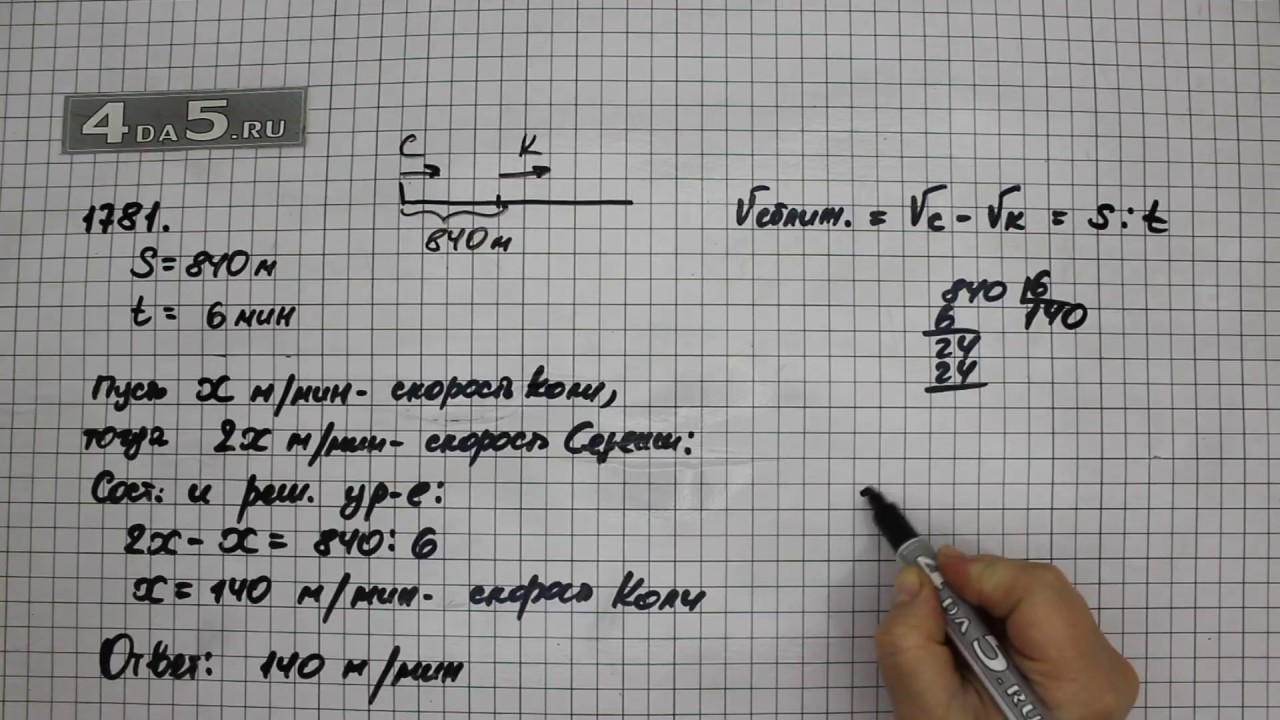 4DA5.RU
С К
840 м
1781.
S = 840 м
t = 6 мин
Vсближ. = Vс - Vк = S : t
840 6
6 140
24
24
Пусть x м/мин - скорость Коли,
тогда 2x м/мин - скорость Сережи:
Сост. и реш. ур-е:
2x - x = 840 : 6
x = 140 м/мин - скорость Коли
Ответ: 140 м/мин
4DA5.RU